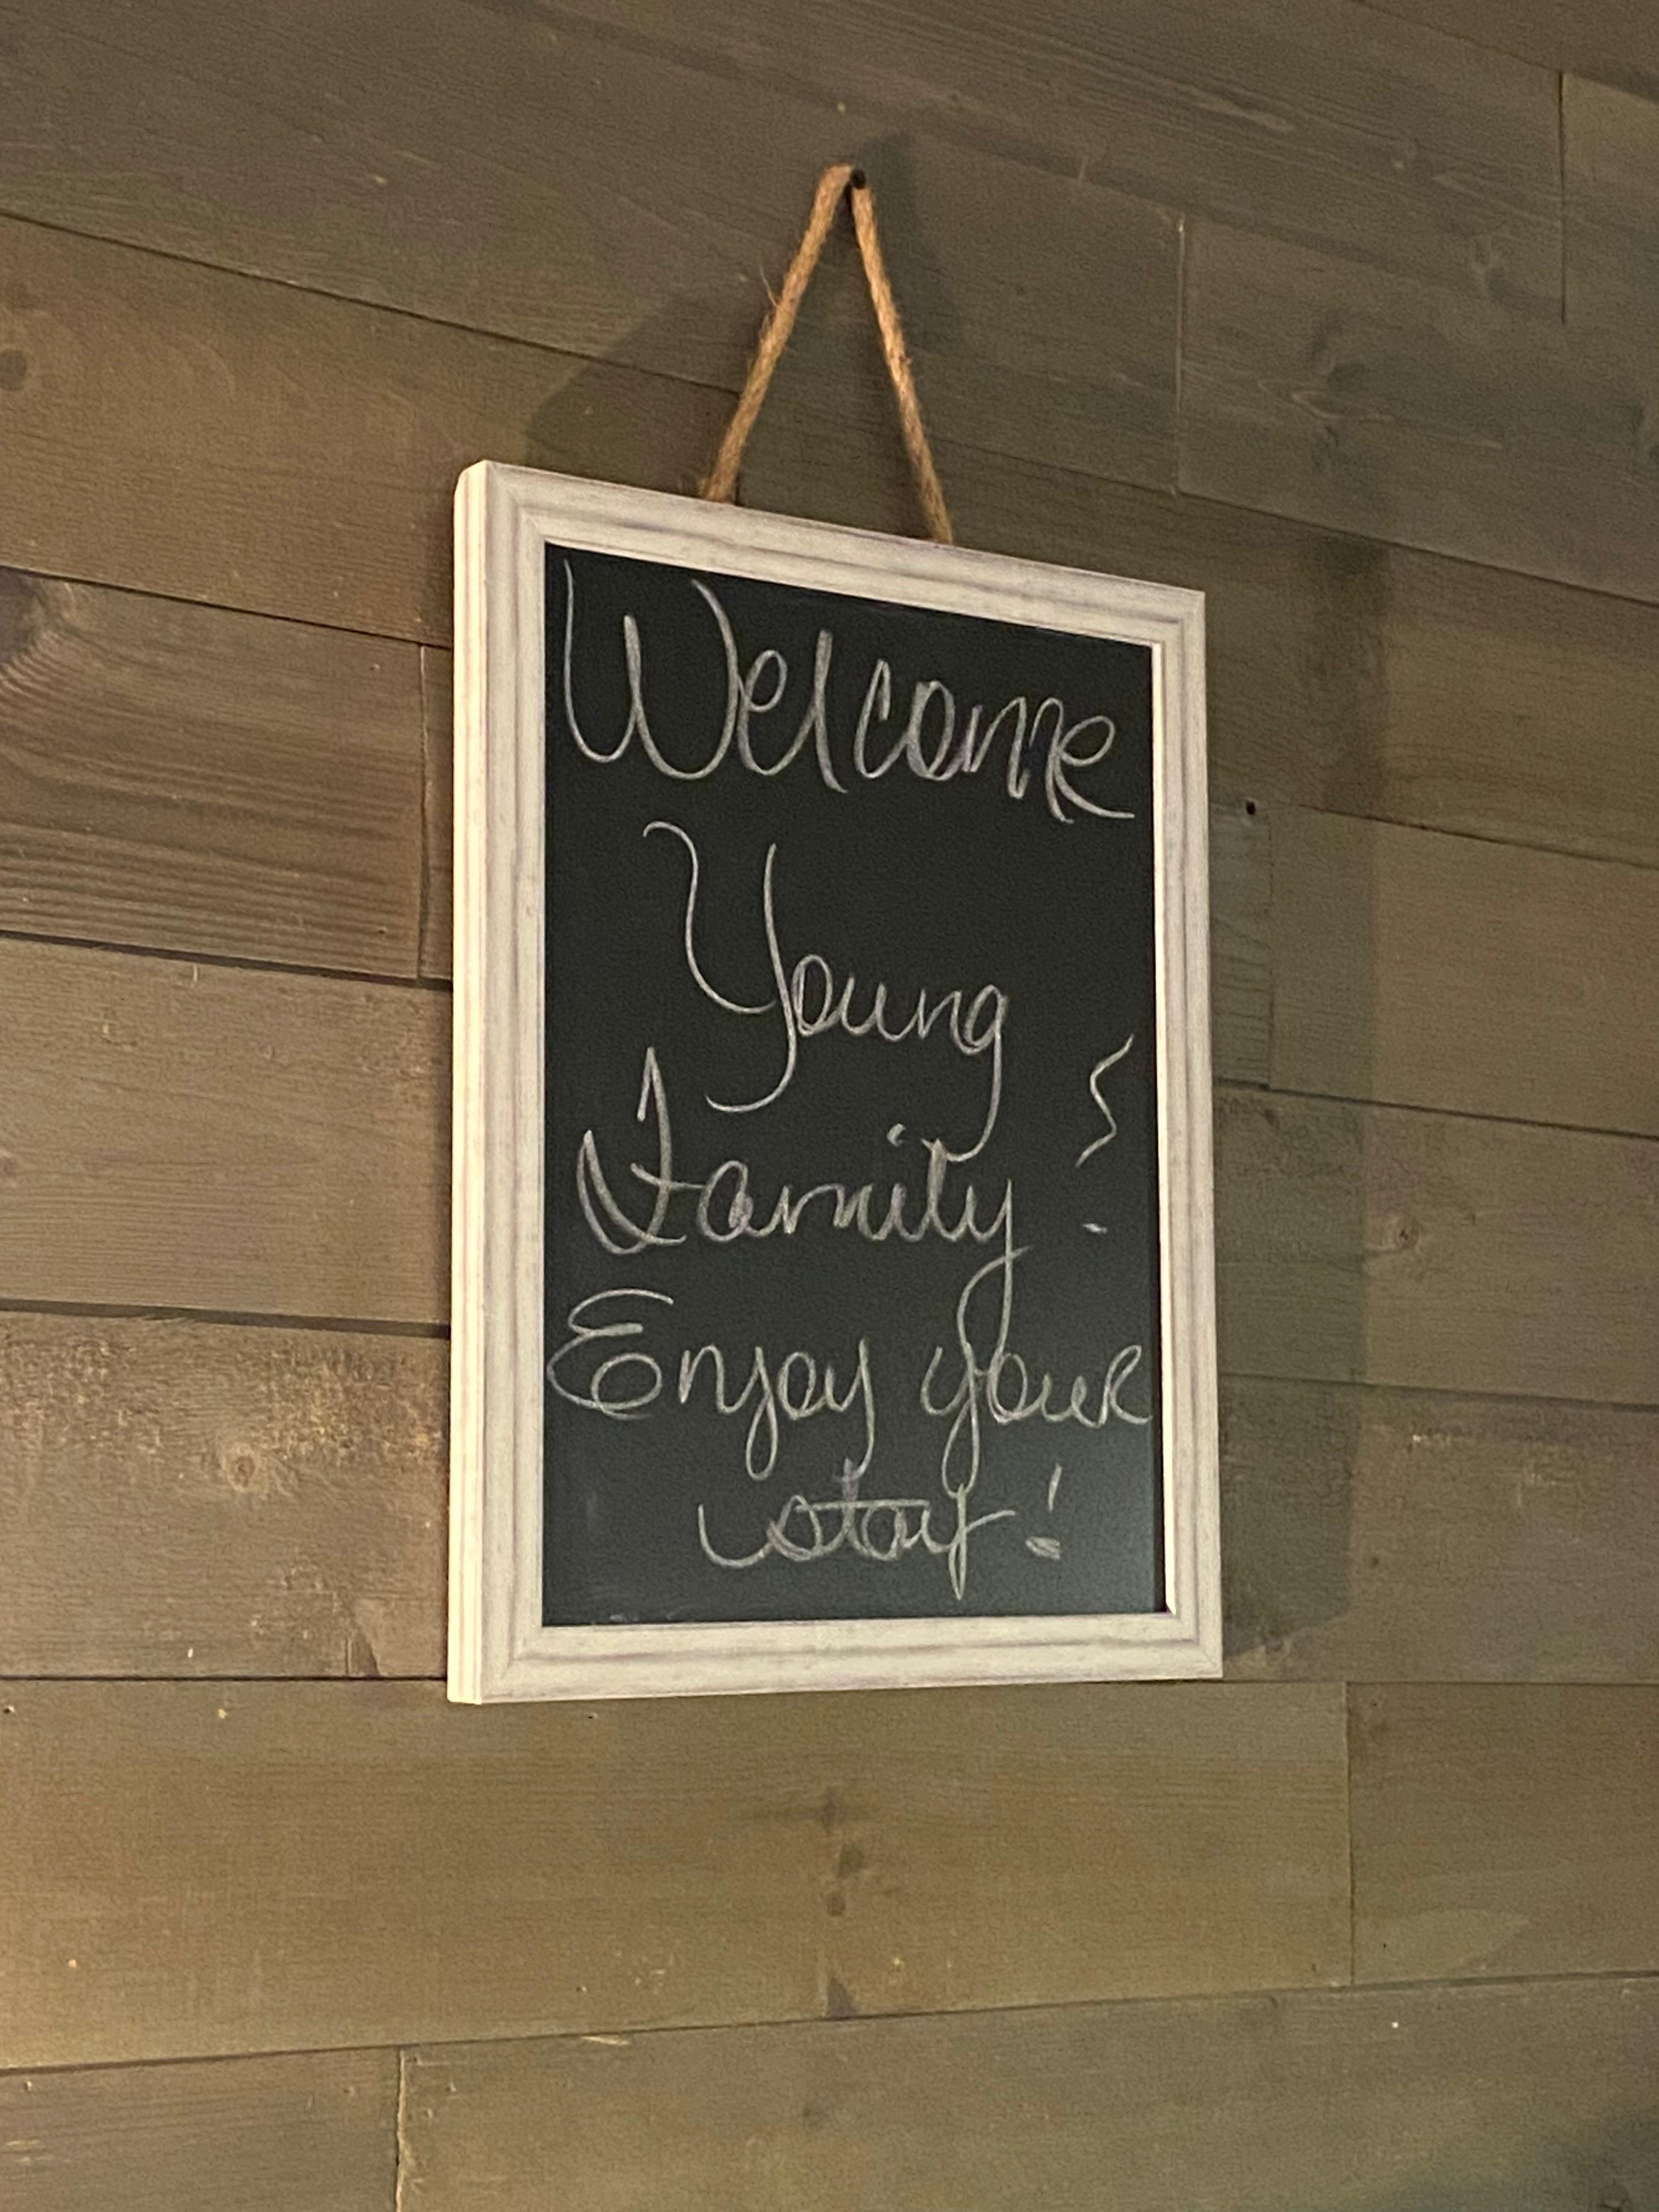 Welcome
Young
Family!
Enjoy your
stay!